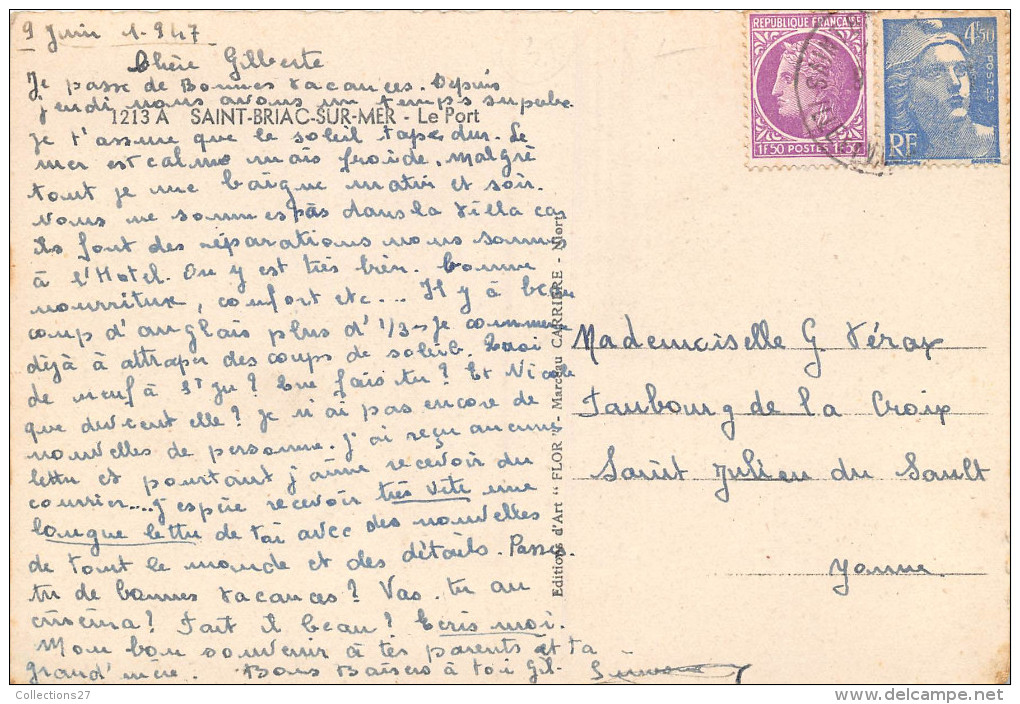 9 Juin 1947
Chère Gilberte
Je passe de Bonnes vacances. Depuis
jeudi nous avons un temps superbe
1213 A SAINT-BRIAC-SUR-MER - Le Port
je t'assure que le soleil tape dur. Le
mer est calme mais froide, malgrè
tout je me baigne matin et soir.
Nous ne sommes pas dans la Villa car
ils font des réparations nous sommes
à l'Hotel. On y est très bien. bonne
nourriture, confort etc... Il y à beau
coup d'anglais plus d'1/3 - Je commence
déjà à attraper des coups de soleil. Quoi
de neuf à St Ju? Que fais tu? Et Nicole
que devient elle? Je n'ai pas encore de
nouvelles de personne. J'ai reçu aucune
lettre et pourtant j'aime recevoir du
courrier.... J'espère recevoir très vite une
longue lettre de toi avec des nouvelles
de tout le monde et des détails. Passes
tu de bonnes vacances? Vas-tu au
cinéma? Fait il beau? Ecris moi.
Mon bon souvenir à tes parents et ta
grand'mère. Bons Baisers à toi Gil-
REPUBLIQUE FRANÇAISE
1F50 POSTES 1F50
4F,50
POSTES
RF
Editions d'Art "FLOR" - Marceau CARRIÈRE - Niort
Mademoiselle G. Férax
Faubourg de la Croix
Saint Julien du Sault
Yonne
Collections27
delcampe.net